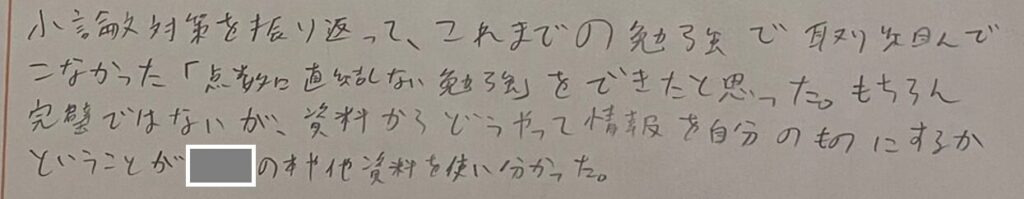 小論文対策を振り返って、これまでの勉強で取り組んで
こなかった「点数に直結しない勉強」をできたと思った。もちろん
完璧ではないが、資料からどうやって情報を自分のものにするか
ということが のや他資料を使い分かった。